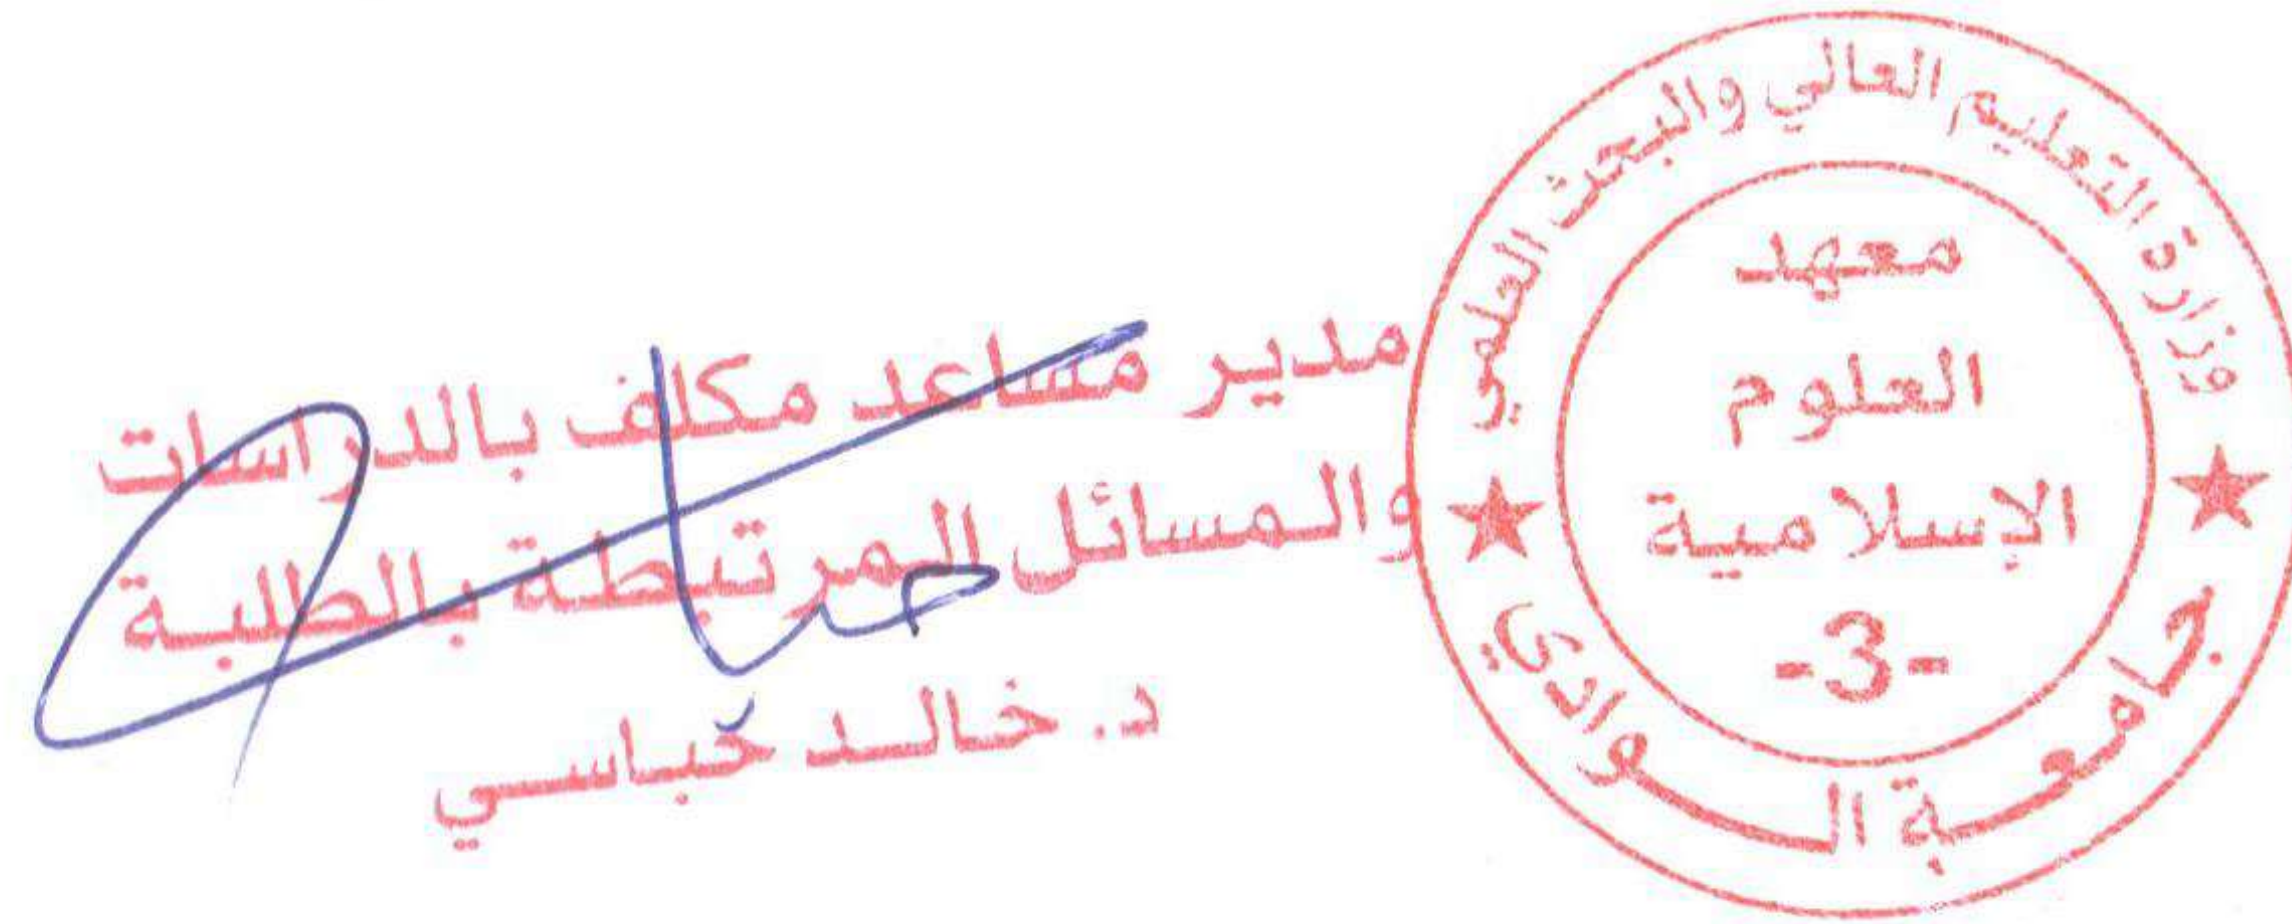 وزارة التعليم العالي والبحث العلمي
معهد
العلوم
الإسلامية
-3-
جامعة الوادي
مدير مساعد مكلف بالدراسات
والمسائل المرتبطة بالطلبة
د. خالد